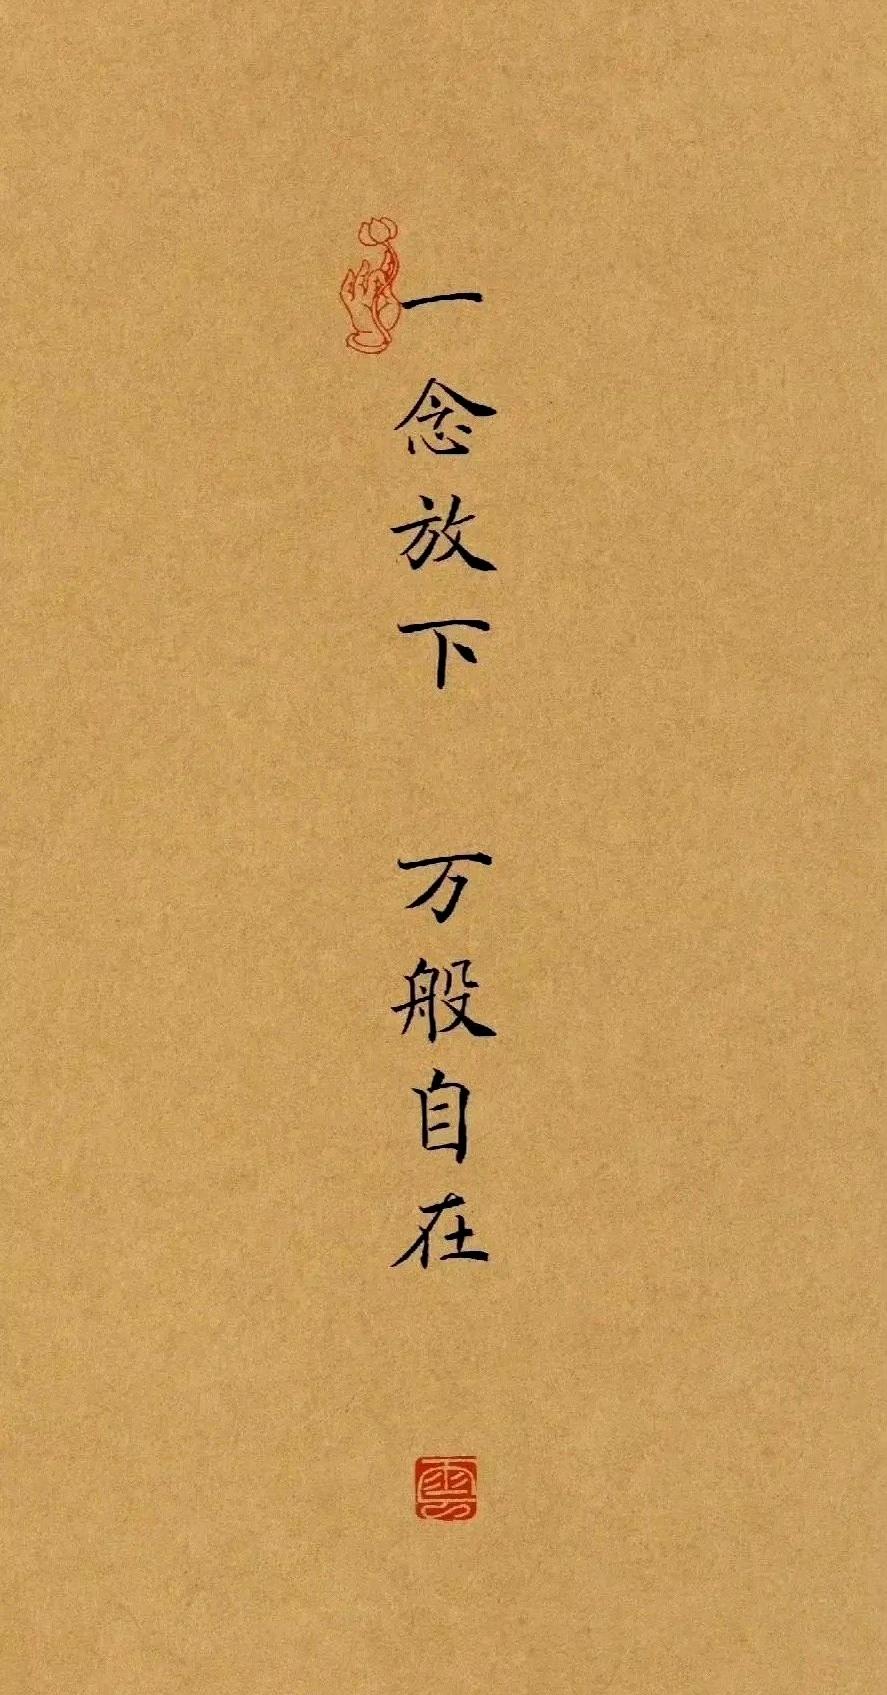 一念放下 万般自在
雲